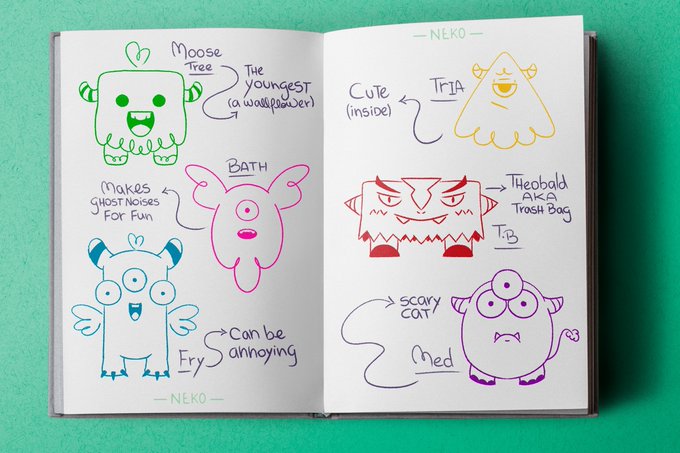 Moose
Tree
The
youngest
(a wallflower)
Bath
Makes
Ghost Noises
For Fun
Fry
Can be
annoying
— NEKO —
— NEKO —
Tria
Cute
(inside)
Theobald
AKA
Trash Bag
T.B
scary
cat
Med